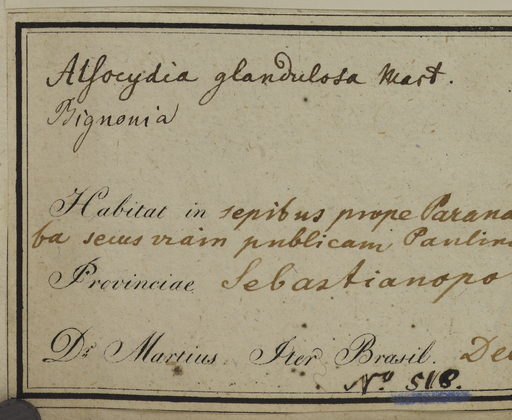 Atsocydia glandulosa Mart.
Bignonia
Habitat in sepibus prope Parana
ba secus viam publicam Paulin
Provinciae Sebastianopo
Dr. Martius Iter Brasil. Dec
No 518.